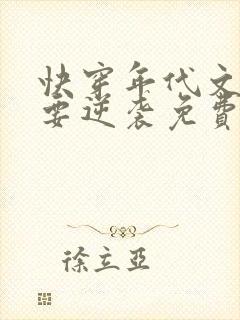 快穿年代文
要逆袭免費
徐立亞